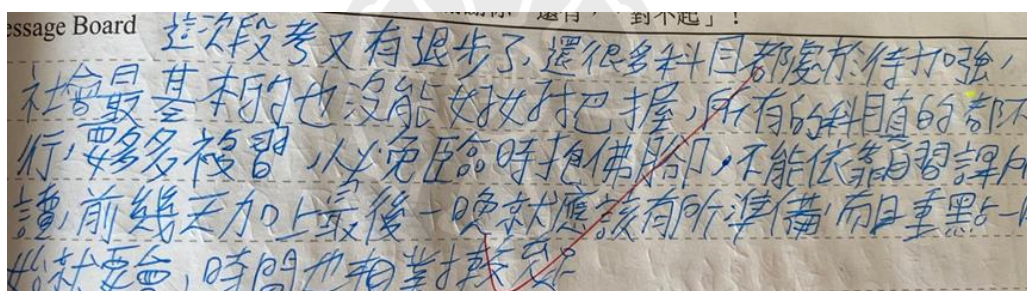 還有，「對不起」！
essage Board 這次段考又有退步了，還很多科目都處於待加強，
社會最基本的也沒能好好把握，所有的科目真的都不
行，要多多複習，以免臨時抱佛腳，不能依靠自習課
讀，前幾天加上最後一晚就應該有所準備，而且重點一
就要會，時間也相